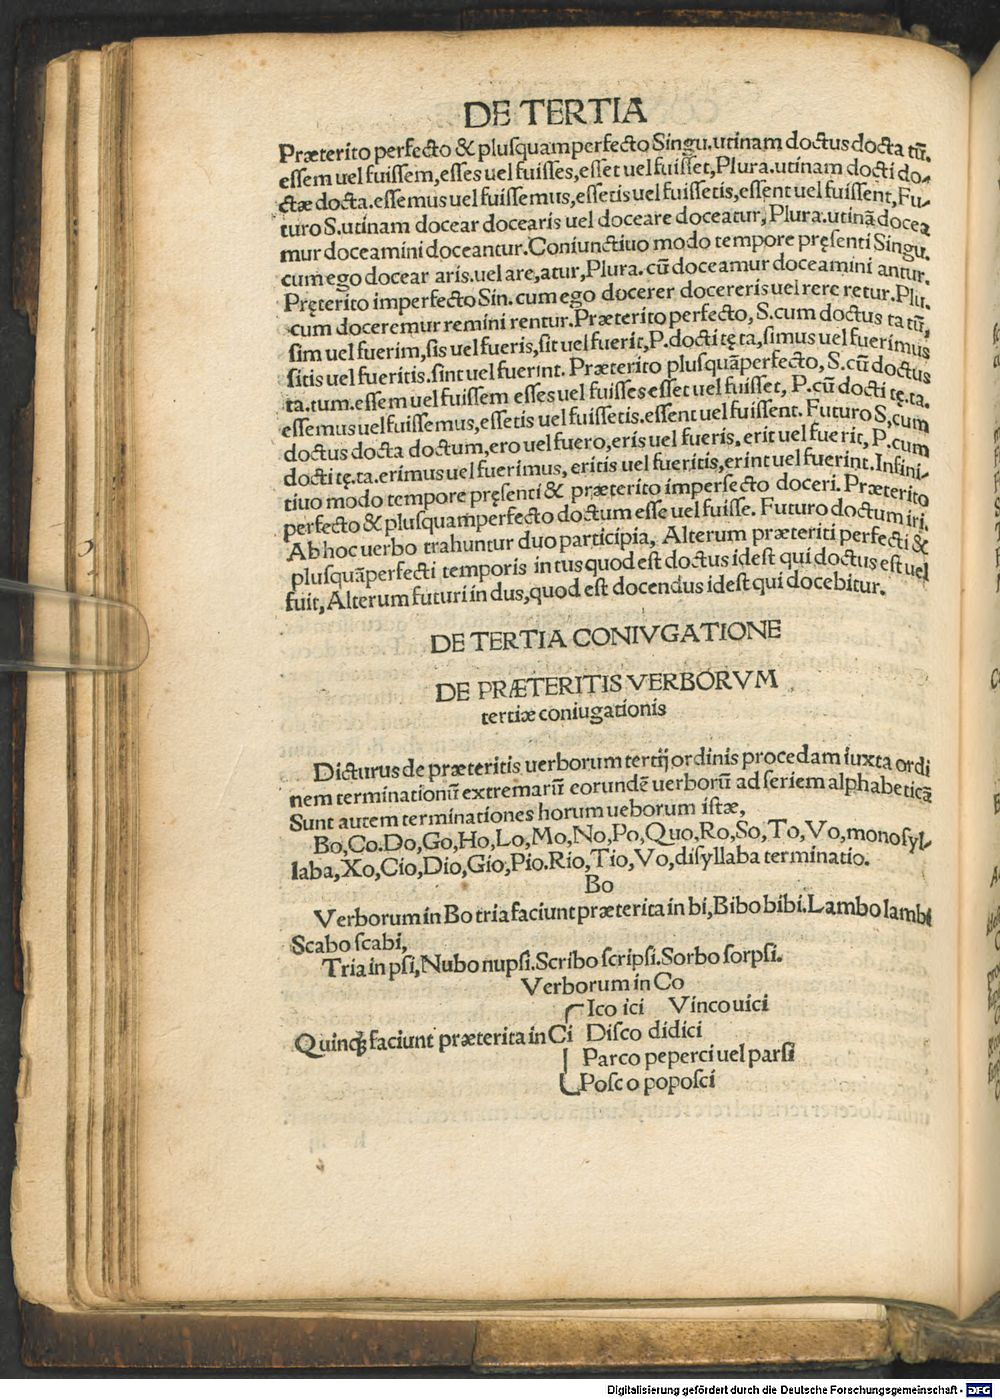 DE TERTIA
Præterito perfecto & pluſquamperfecto Singu.utinam doctus docta tū.
eſſem uel fuiſſem,eſſes uel fuiſſes,eſſet uel fuiſſet,Plura.utinam docti do-
ctæ docta.eſſemus uel fuiſſemus,eſſetis uel fuiſſetis,eſſent uel fuiſſent,Fu-
turo S.utinam docear docearis uel doceare doceatur, Plura.utinā docea
mur doceamini doceantur.Coniunctiuo modo tempore pręſenti Singu.
cum ego docear aris.uel are,atur,Plura. cū doceamur doceamini antur.
Pręterito imperfecto Sin. cum ego docerer docereris uel rere retur.Plu.
cum doceremur remini rentur.Præterito perfecto, S.cum doctus ta tū,
ſim uel fuerim,ſis uel fueris,ſit uel fuerit,P.docti tę ta,ſimus uel fuerimus
ſitis uel fueritis.ſint uel fuerint. Præterito pluſquāperfecto, S.cū doctus
ta.tum.eſſem uel fuiſſem eſſes uel fuiſſes eſſet uel fuiſſet, P.cū docti tę.ta.
eſſemus uel fuiſſemus,eſſetis uel fuiſſetis.eſſent uel fuiſſent. Futuro S,cum
doctus docta doctum,ero uel fuero,eris uel fueris. erit uel fuerit, P.cum
docti tę.ta.erimus uel fuerimus, eritis uel fueritis,erint uel fuerint.Infini-
tiuo modo tempore pręſenti & præterito imperfecto doceri. Præterito
perfecto & pluſquamperfecto doctum eſſe uel fuiſſe. Futuro doctum iri.
Ab hoc uerbo trahuntur duo participia, Alterum præteriti perfecti &
pluſquāperfecti temporis in tus quod eſt doctus ideſt qui doctus eſt uel
fuit, Alterum futuri in dus,quod eſt docendus ideſt qui docebitur.
DE TERTIA CONIVGATIONE
DE PRÆTERITIS VERBORVM
tertiæ coniugationis
Dicturus de præteritis uerborum tertij ordinis procedam iuxta ordi
nem terminationū extremarū eorundē uerborū ad ſeriem alphabeticā
Sunt autem terminationes horum ueborum iſtæ,
Bo,Co.Do,Go,Ho,Lo,Mo,No,Po,Quo,Ro,So,To,Vo,monoſyl-
laba,Xo,Cio,Dio,Gio,Pio.Rio,Tio,Vo,diſyllaba terminatio.
Bo
Verborum in Bo tria faciunt præterita in bi,Bibo bibi.Lambo lambi
Scabo ſcabi,
Tria in pſi, Nubo nupſi.Scribo ſcripſi.Sorbo ſorpſi.
Verborum in Co
Ico ici Vinco uici
Quinqꝫ faciunt præterita in Ci Diſco didici
Parco peperci uel parſi
Poſco popoſci
Digitalisierung gefördert durch die Deutsche Forschungsgemeinschaft - DFG